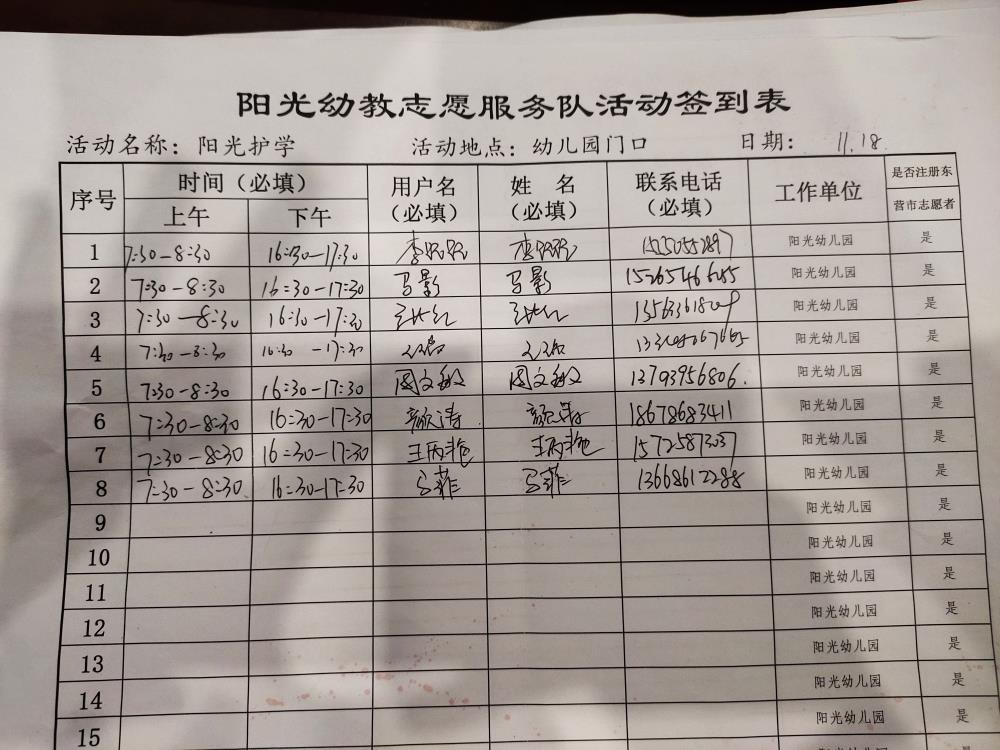 阳光幼教志愿服务队活动签到表
活动名称：阳光护学 活动地点：幼儿园门口 日期： 11.18
序号 时间（必填） 用户名（必填） 姓 名（必填） 联系电话（必填） 工作单位 是否注册东营市志愿者
上午 下午
1 7:30-8:30 16:30-17:30 阳光幼儿园 是
2 7:30-8:30 16:30-17:30 马影 马影 阳光幼儿园 是
3 7:30-8:30 16:30-17:30 阳光幼儿园 是
4 7:30-8:30 16:30-17:30 阳光幼儿园 是
5 7:30-8:30 16:30-17:30 周文敏 周文敏 13793956806. 阳光幼儿园 是
6 7:30-8:30 16:30-17:30 颜涛 颜涛 18678683411 阳光幼儿园 是
7 7:30-8:30 16:30-17:30 王丙艳 王丙艳 15725873037 阳光幼儿园 是
8 7:30-8:30 16:30-17:30 马菲 马菲 13668612288 阳光幼儿园 是
9 阳光幼儿园 是
10 阳光幼儿园 是
11 阳光幼儿园 是
12 阳光幼儿园 是
13 阳光幼儿园 是
14 阳光幼儿园 是
15 阳光幼儿园 是